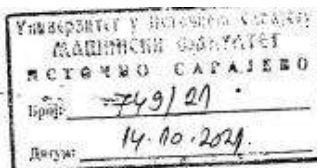 Универзитет у Источном Сарајеву
МАШИНСКИ ФАКУЛТЕТ
ИСТОЧНО САРАЈЕВО
Број: 749/21
Датум: 14.10.2021.